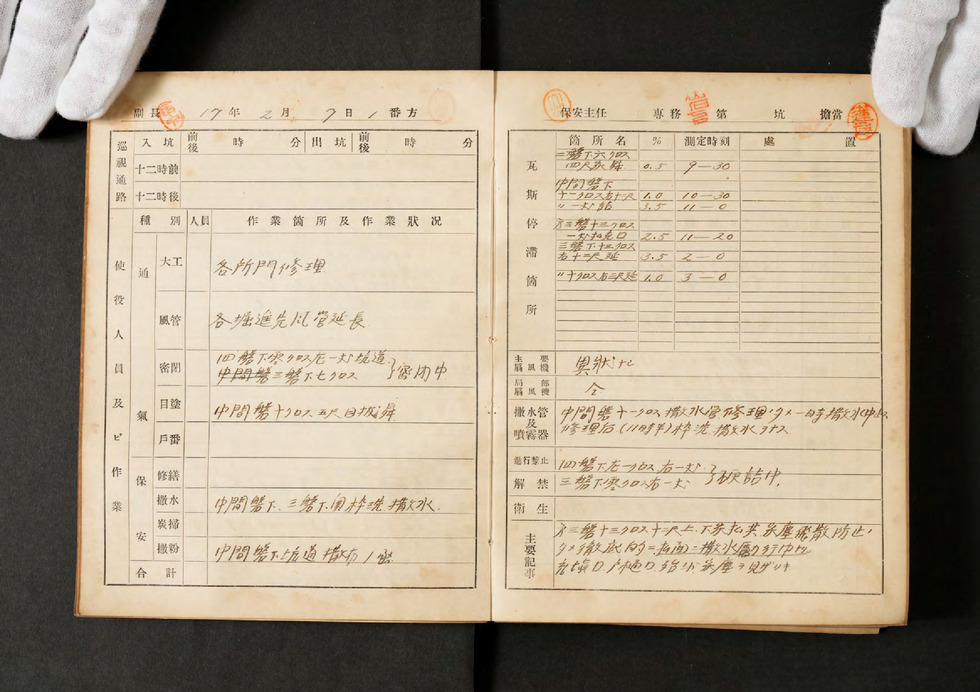 副長 17年 2月 9日 1番方
巡視通路
入坑 前後 時 分 出坑 前後 時 分
十二時前
十二時後
使役人員及ビ作業
種別 人員 作業箇所及作業狀况
通氣
大工 各所門修理
風管 各堀進先風管延長
密閉 四盤下零クロス左一大坑道
三盤下七クロス 密閉中
目塗 中間盤十クロス五尺目抜昇
戶番
保安
修繕
撒水 中間盤下、三盤下、用枠洗撒水
炭掃
撒粉 中間盤下坑道撒布
合計
保安主任 專務 第 坑 擔當
瓦斯停滯箇所
箇所名 % 測定時刻 處置
二盤下六クロス
四尺 昇 0.5 9—30
中間盤下
十一クロス右十尺 1.0 10—30
〃 一大 3.5 11—0
三盤十三クロス
一大 口 2.5 11—20
三盤下十三クロス
右十二尺延 3.5 2—0
〃十クロス右三尺延 1.0 3—0
主要扇風機 異狀ナシ
局部扇風機 仝
撒水管及噴霧器
中間盤十一クロス撒水管修理ノタメ一時撒水中止
修理后(11時半)枠洗撒水
進行禁止 四盤下左一クロス右一大
解禁 三盤下零クロス右一大
衛生
主要記事
三盤十三クロス十二尺上、下 炭塵飛散防止ノ
タメ徹底的ニ 撒水